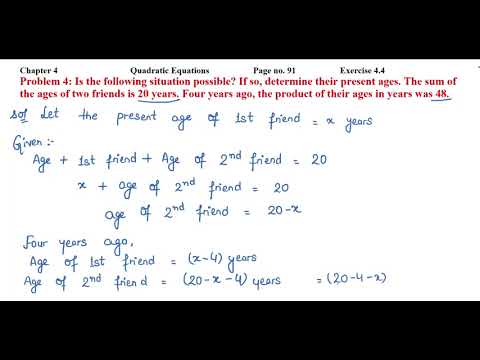 Chapter 4 Quadratic Equations Page no. 91 Exercise 4.4
Problem 4: Is the following situation possible? If so, determine their present ages. The sum of
the ages of two friends is 20 years. Four years ago, the product of their ages in years was 48.
Sol Let the present age of 1st friend = x years
Given :-
Age + 1st friend + Age of 2nd friend = 20
x + age of 2nd friend = 20
age of 2nd friend = 20-x
Four years ago,
Age of 1st friend = (x-4) years
Age of 2nd friend = (20-x-4) years = (20-4-x)